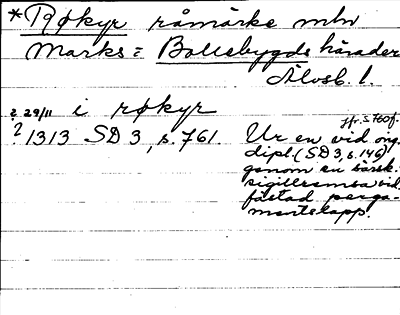 *Røkyr råmärke mln
Marks = Bollebygds härader
Älvsb. l.
? 29/11 i røkyr
? 1313 SD 3, s. 761.
jfr. s 760 f.
Ur en vid org.
dipl. (SD 3, s. 146)
genom en särsk.
sigillremsa vid
fästad perga-
mentslapp.